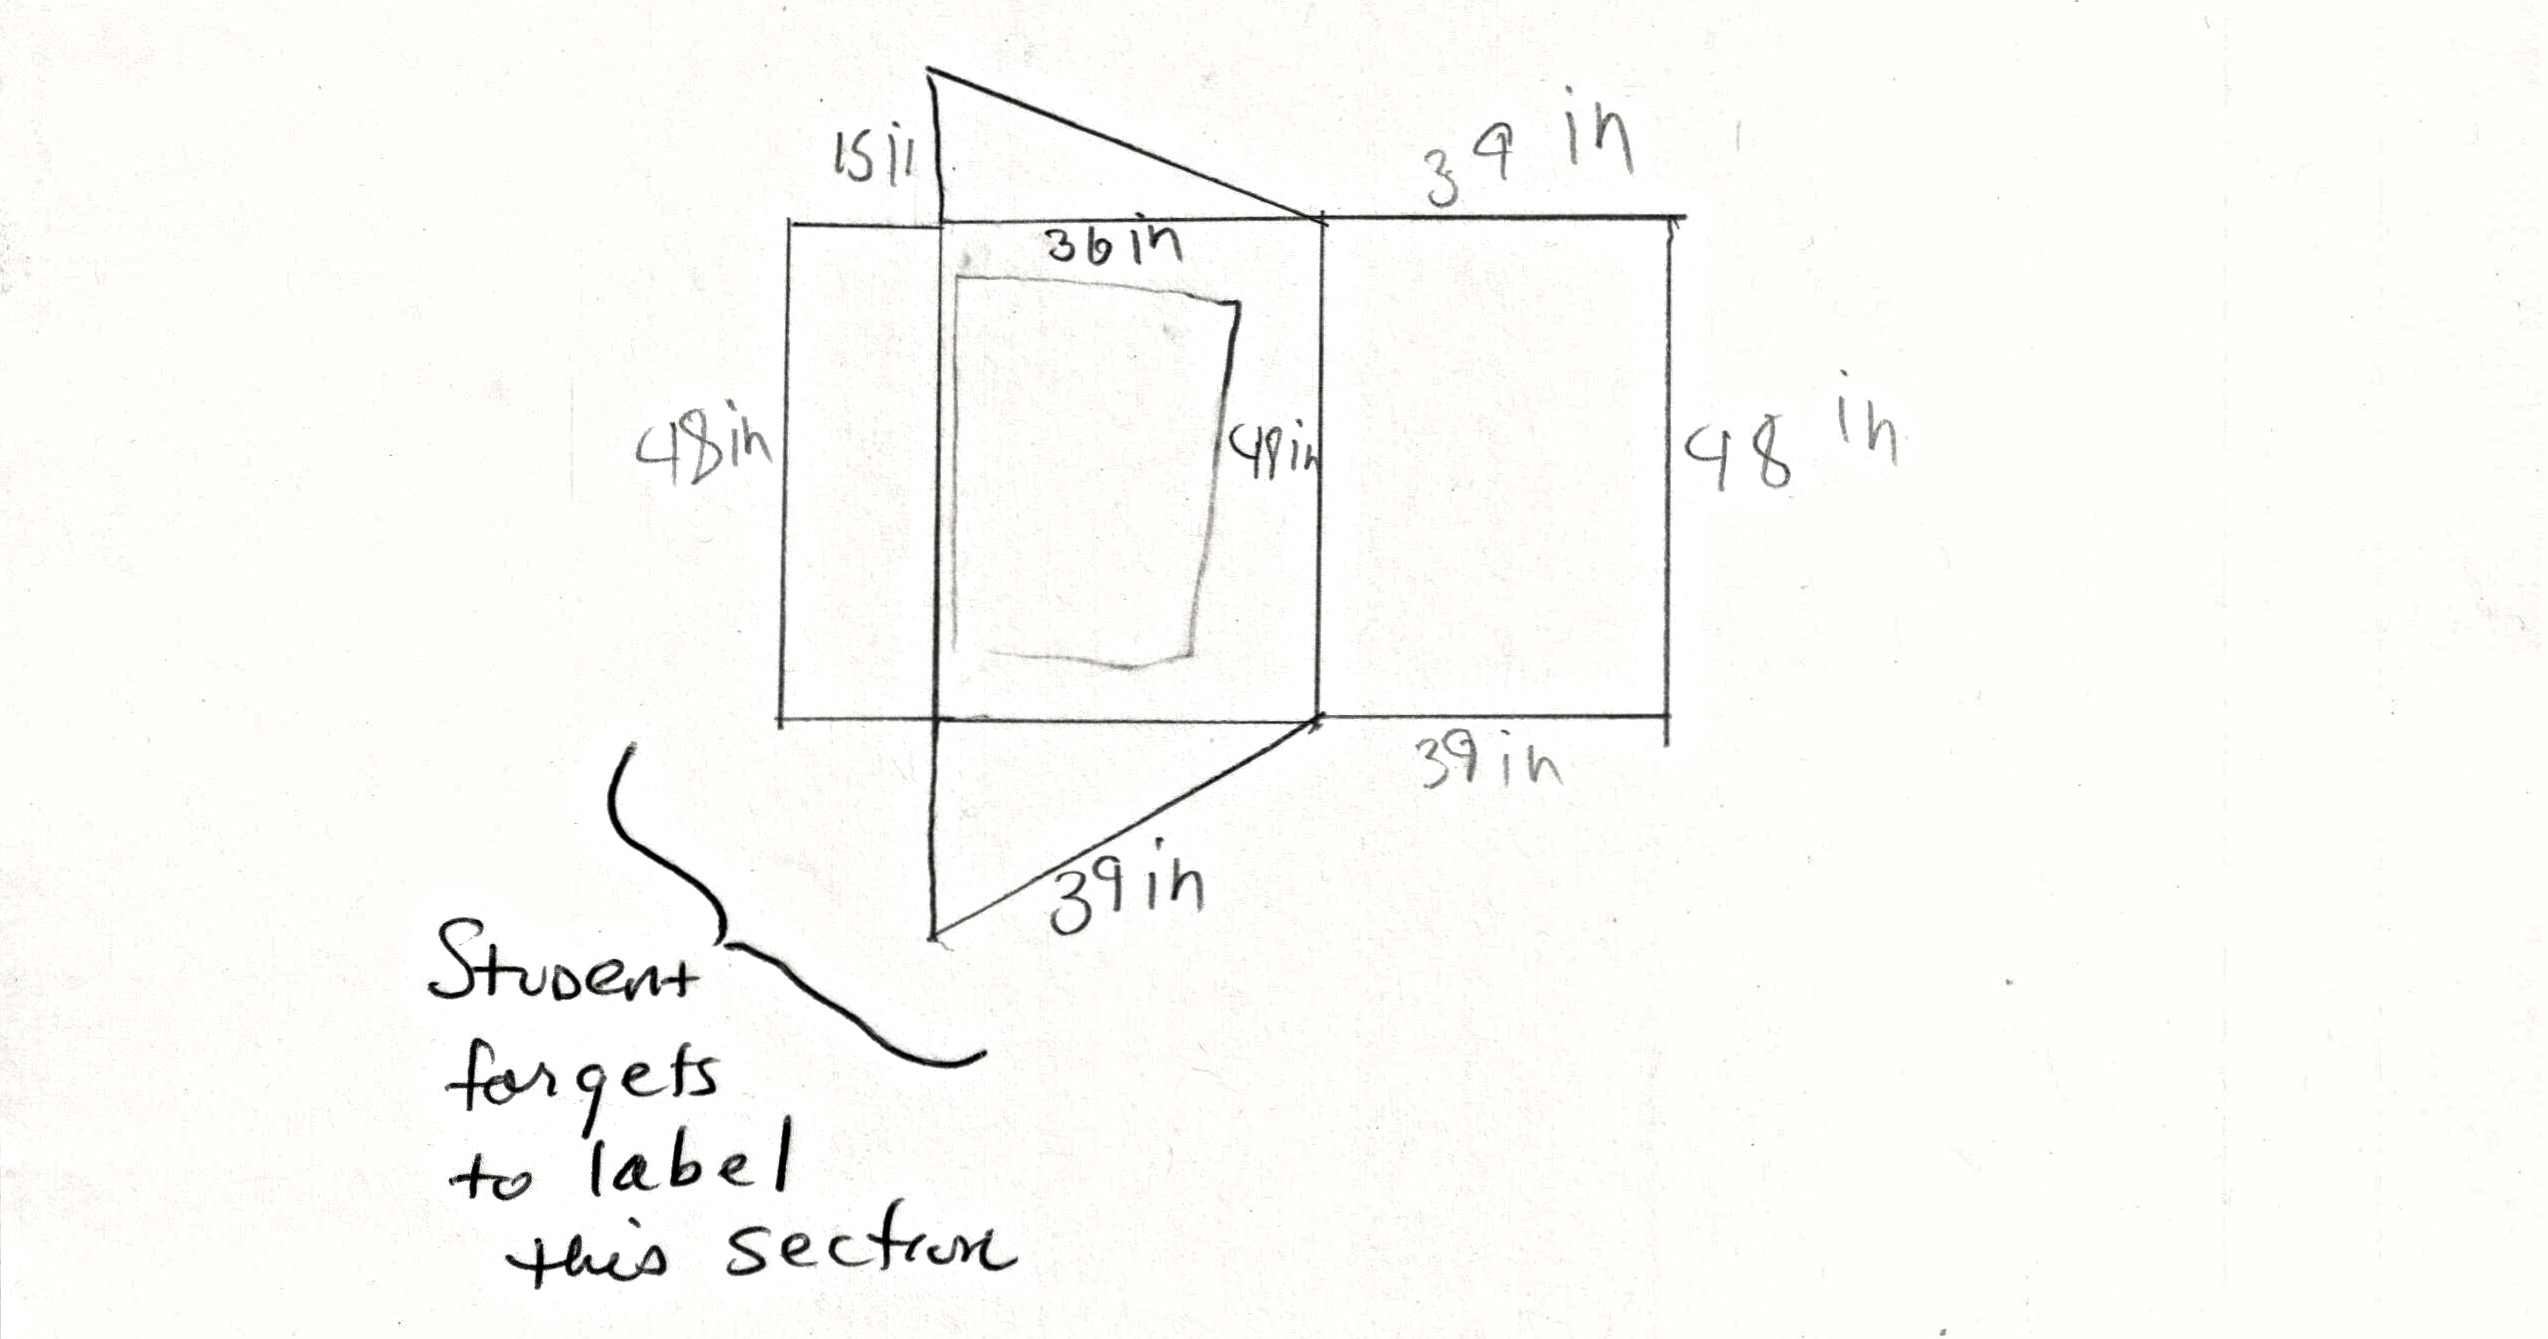 15 in
39 in
36 in
48 in
48 in
48 in
39 in
39 in
Student
forgets
to label
this section